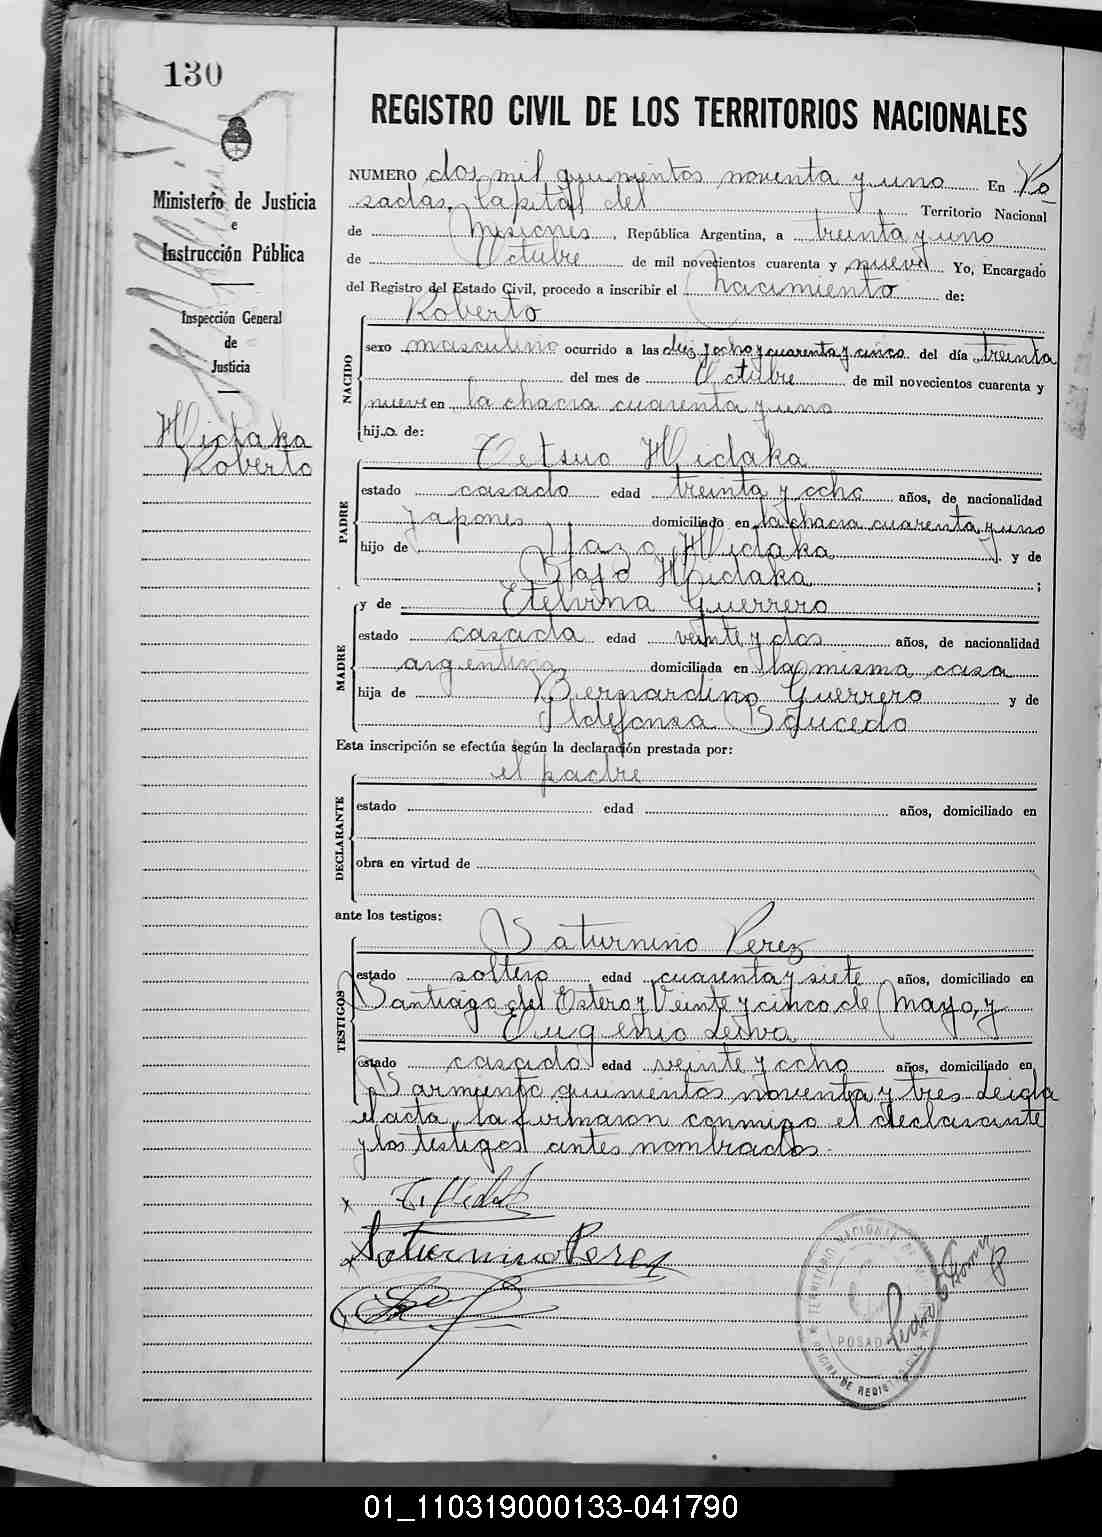 130
REGISTRO CIVIL DE LOS TERRITORIOS NACIONALES
Ministerio de Justicia
e
Instrucción Pública
Inspección General
de
Justicia
Hidaka
Roberto
NUMERO dos mil quinientos noventa y uno En Po
sadas, Capital del Territorio Nacional
de Misiones, República Argentina, a treinta y uno
de Octubre de mil novecientos cuarenta y nueve Yo, Encargado
del Registro del Estado Civil, procedo a inscribir el nacimiento de:
Roberto
NACIDO
sexo masculino ocurrido a las diez y ocho y cuarenta y cinco del día treinta
del mes de Octubre de mil novecientos cuarenta y
nueve en la chacra cuarenta y uno
hijo de:
Tetsuo Hidaka
PADRE
estado casado edad treinta y ocho años, de nacionalidad
japones domiciliado en la chacra cuarenta y uno
hijo de Hidaka y de
Hidaka ;
y de Etelvina Guerrero
MADRE
estado casada edad veinte y dos años, de nacionalidad
argentina domiciliada en la misma casa
hija de Bernardino Guerrero y de
Ildefonsa Saucedo
Esta inscripción se efectúa según la declaración prestada por:
el padre
DECLARANTE
estado edad años, domiciliado en
obra en virtud de
ante los testigos:
Saturnino Perez
TESTIGOS
estado soltero edad cuarenta y siete años, domiciliado en
Santiago del Estero y Veinte y cinco de Mayo, y
Eugenio Leiva
estado casado edad veinte y ocho años, domiciliado en
Sarmiento quinientos noventa y tres Leida
el acta, la firmaron conmigo el declarante
y los testigos antes nombrados.
T. Hidaka
Saturnino Perez
TERRITORIO NACIONAL DE
POSADAS
OFICINA DE REGISTRO CIVIL
01_110319000133-041790